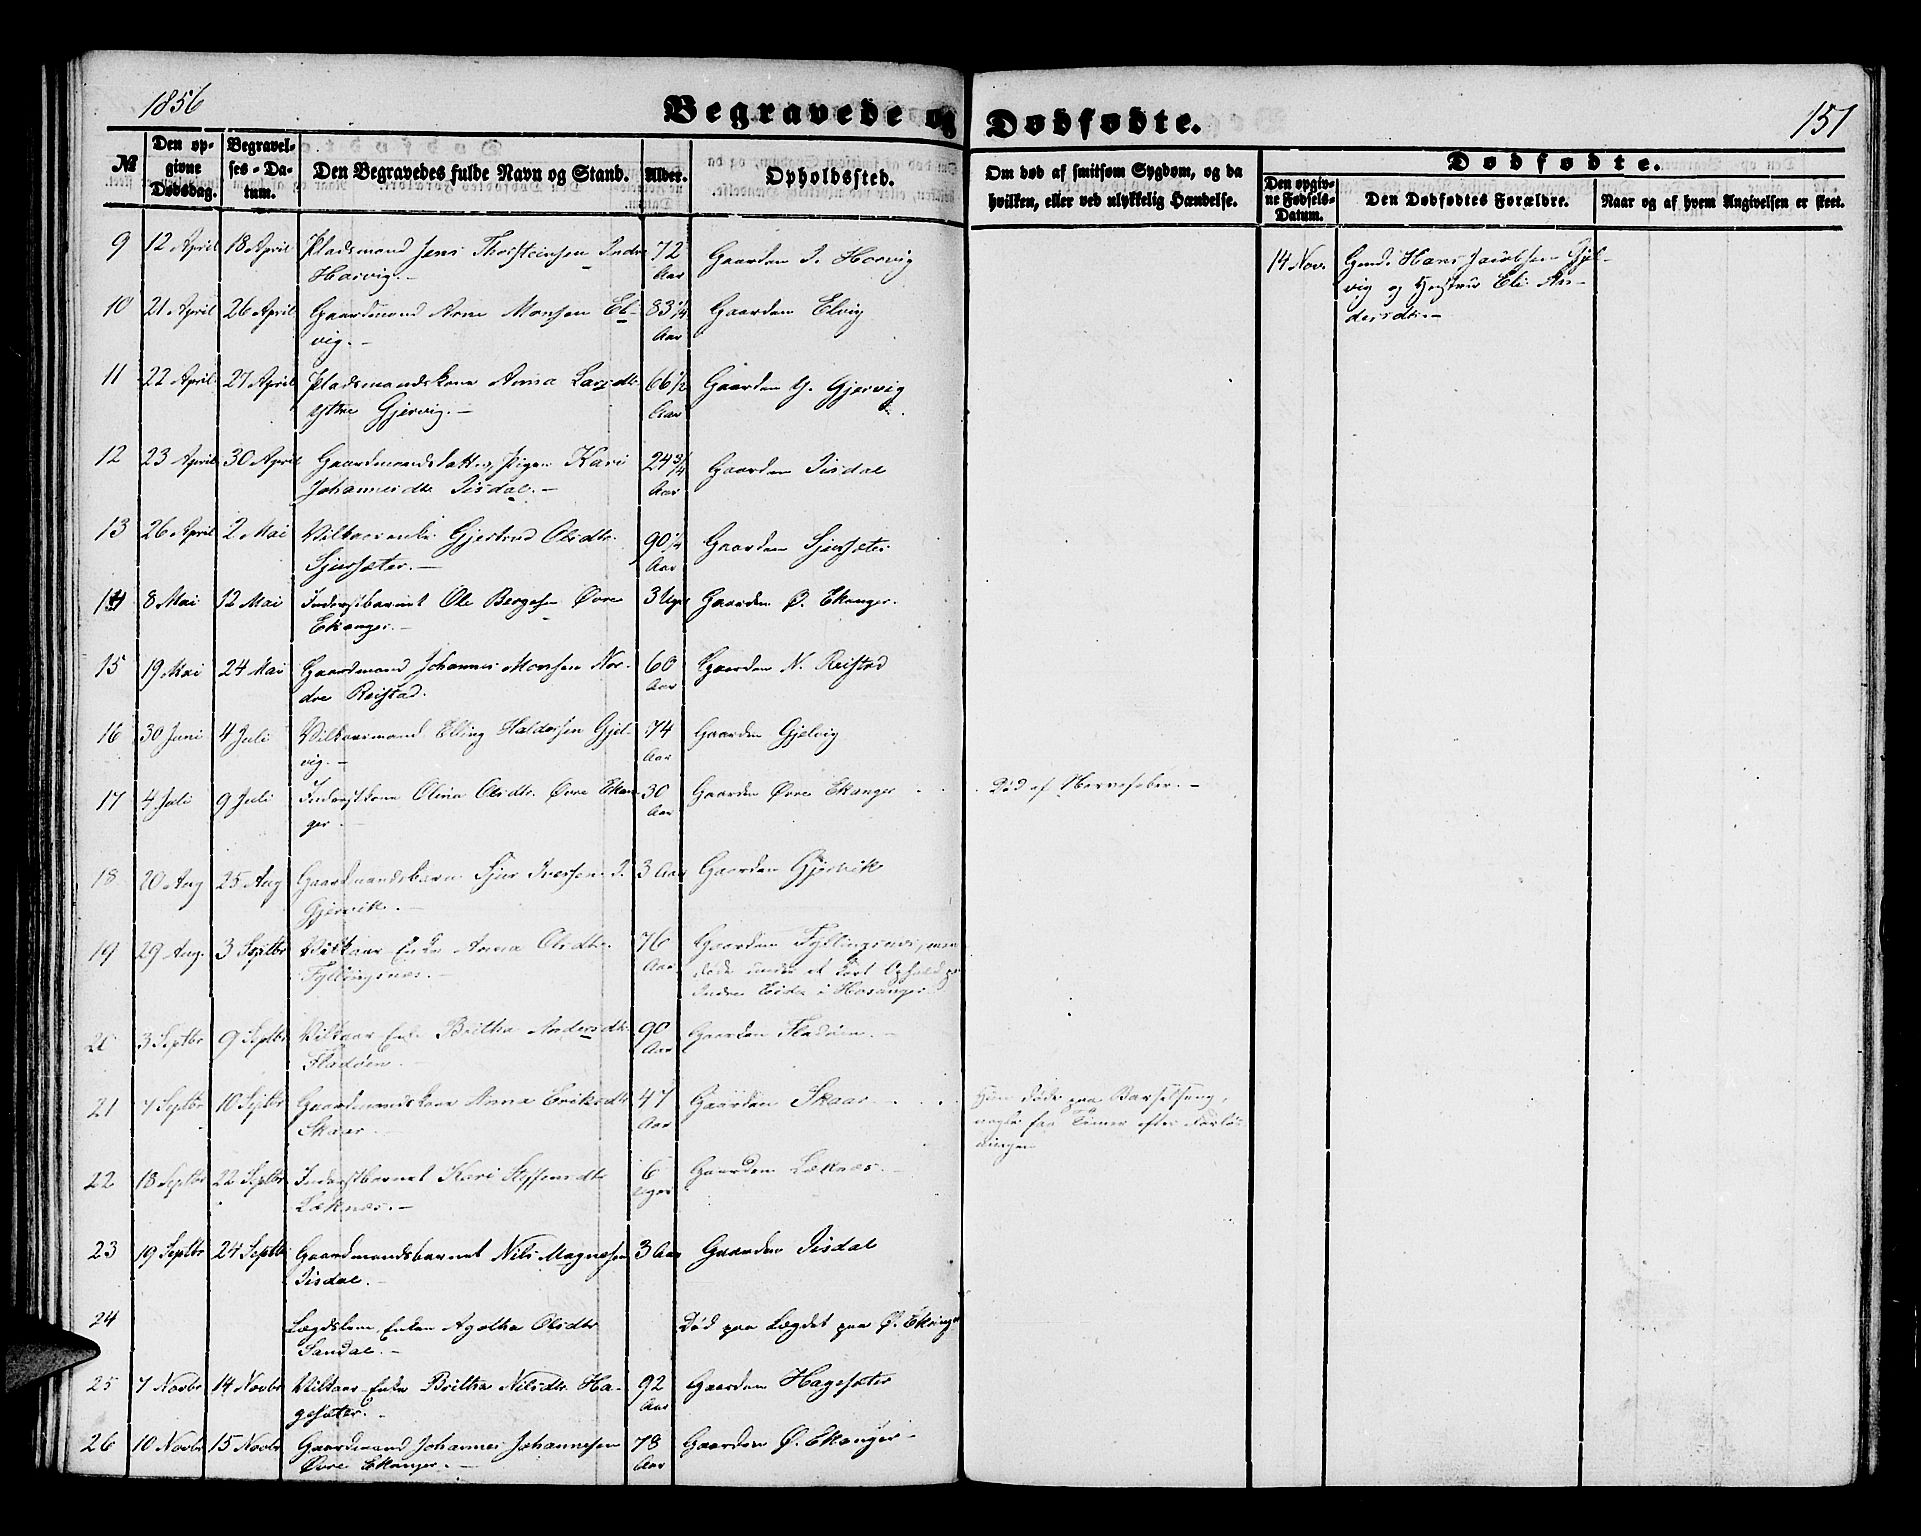 1856
Begravede og Dødfødte.
151
№
Den opgivne Dødsdag.
Begravelses-Datum.
Den Begravedes fulde Navn og Stand.
Alder.
Opholdssted.
Om død af smitsom Sygdom, og da hvilken, eller ved ulykkelig Hændelse.
Dødfødte.
Den opgivne Fødsels-Datum.
Den Dødfødtes Forældre.
Naar og af hvem Angivelsen er skeet.
9 12 April 18 April Pladsmand Jens Thorsteinsen Indre 72 Gaarden I. Horvig
Horvig.— Aar
14 Nov. Gmd. Hans Jacobsen Gjel-
vig og Hustru Eli An-
dersdtr.—
10 21 April 26 April Gaardmand Arne Monsen El- 83 1/4 Gaarden Elvig
vig.— Aar
11 22 April 27 April Pladsmandskone Anna Larsdtr 66 1/2 Gaarden Y. Gjervig
Ytre Gjervig.— Aar
12 23 April 30 April Gaardmandsdatter, Pigen Kari 24 3/4 Gaarden Iisdal
Johannesdtr Iisdal.— Aar
13 26 April 2 Mai Vilkaarsenke Gjertrud Olsdtr. 90 1/4 Gaarden Sjursæter
Sjursæter.— Aar
14 8 Mai 12 Mai Inderstbarnet Ole Bergesen Øvre 3 Uger Gaarden Ø. Ekanger.
Ekanger.—
15 19 Mai 24 Mai Gaardmand Johannes Monsen Nor- 60 Gaarden N. Reistad
dre Reistad. Aar
16 30 Juni 4 Juli Vilkaarsmand Elling Haldorsen Gjel- 74 Gaarden Gjelvig
vig.— Aar
17 4 Juli 9 Juli Inderstkone Olina Olsdtr. Øvre Ekan- 30 Gaarden Øvre Ekanger Død af Nervefeber.—
ger.— Aar
18 20 Aug 25 Aug Gaardmandsbarn Sjur Iversen I. 3 Aar Gaarden Gjervik
Gjervik.—
19 29 Aug. 3 Septbr Vilkaar Enke Anna Olsdtr. 76 Gaarden Fyllingsnes, men
Fyllingsnæs.— Aar døde under et kort Ophold paa
Indre Eide i Hosanger
20 3 Septbr 9 Septbr Vilkaar Enke Brithe Andersdtr. 90 Gaarden Fladøen.—
Fladøen.— Aar
21 7 Septbr 10 Septbr Gaardmandskone Anna Eriksdtr 47 Gaarden Skaar Hun døde paa Barselseng,
Skaar.— Aar nogle faa Timer efter Forløs-
ningen
22 18 Septbr 22 Septbr Inderstbarnet Kari Steffensdtr 6 Gaarden Læknæs.—
Læknæs.— Uger
23 19 Septbr 24 Septbr Gaardmandsbarnet Nils Magnesen 3 Aar Gaarden Iisdal
Iisdal.—
24 Lægdslem, Enken Agatha Olsdtr Død paa Lægdet paa Ø. Ekanger
Sandal.—
25 7 Novbr 14 Novbr Vilkaar-Enke Brithe Nilsdtr. Ha- 92 Gaarden Hagesæter
gesæter.— Aar
26 10 Novbr 15 Novbr Gaardmand Johannes Johannesen 78 Gaarden Ø. Ekanger—
Øvre Ekanger.— Aar